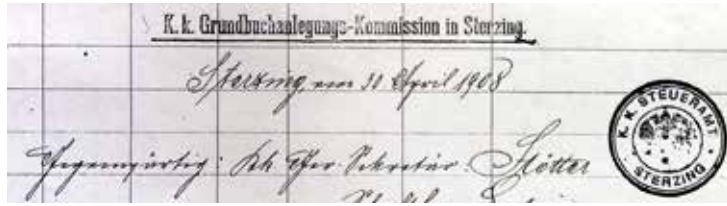 K. k. Grundbuchanlegungs-Kommission in Sterzing.
Sterzing am 30 April 1908
Gegenwärtig: Kk Ger. Sekretär: Stötter
K. K. STEUERAMT
STERZING